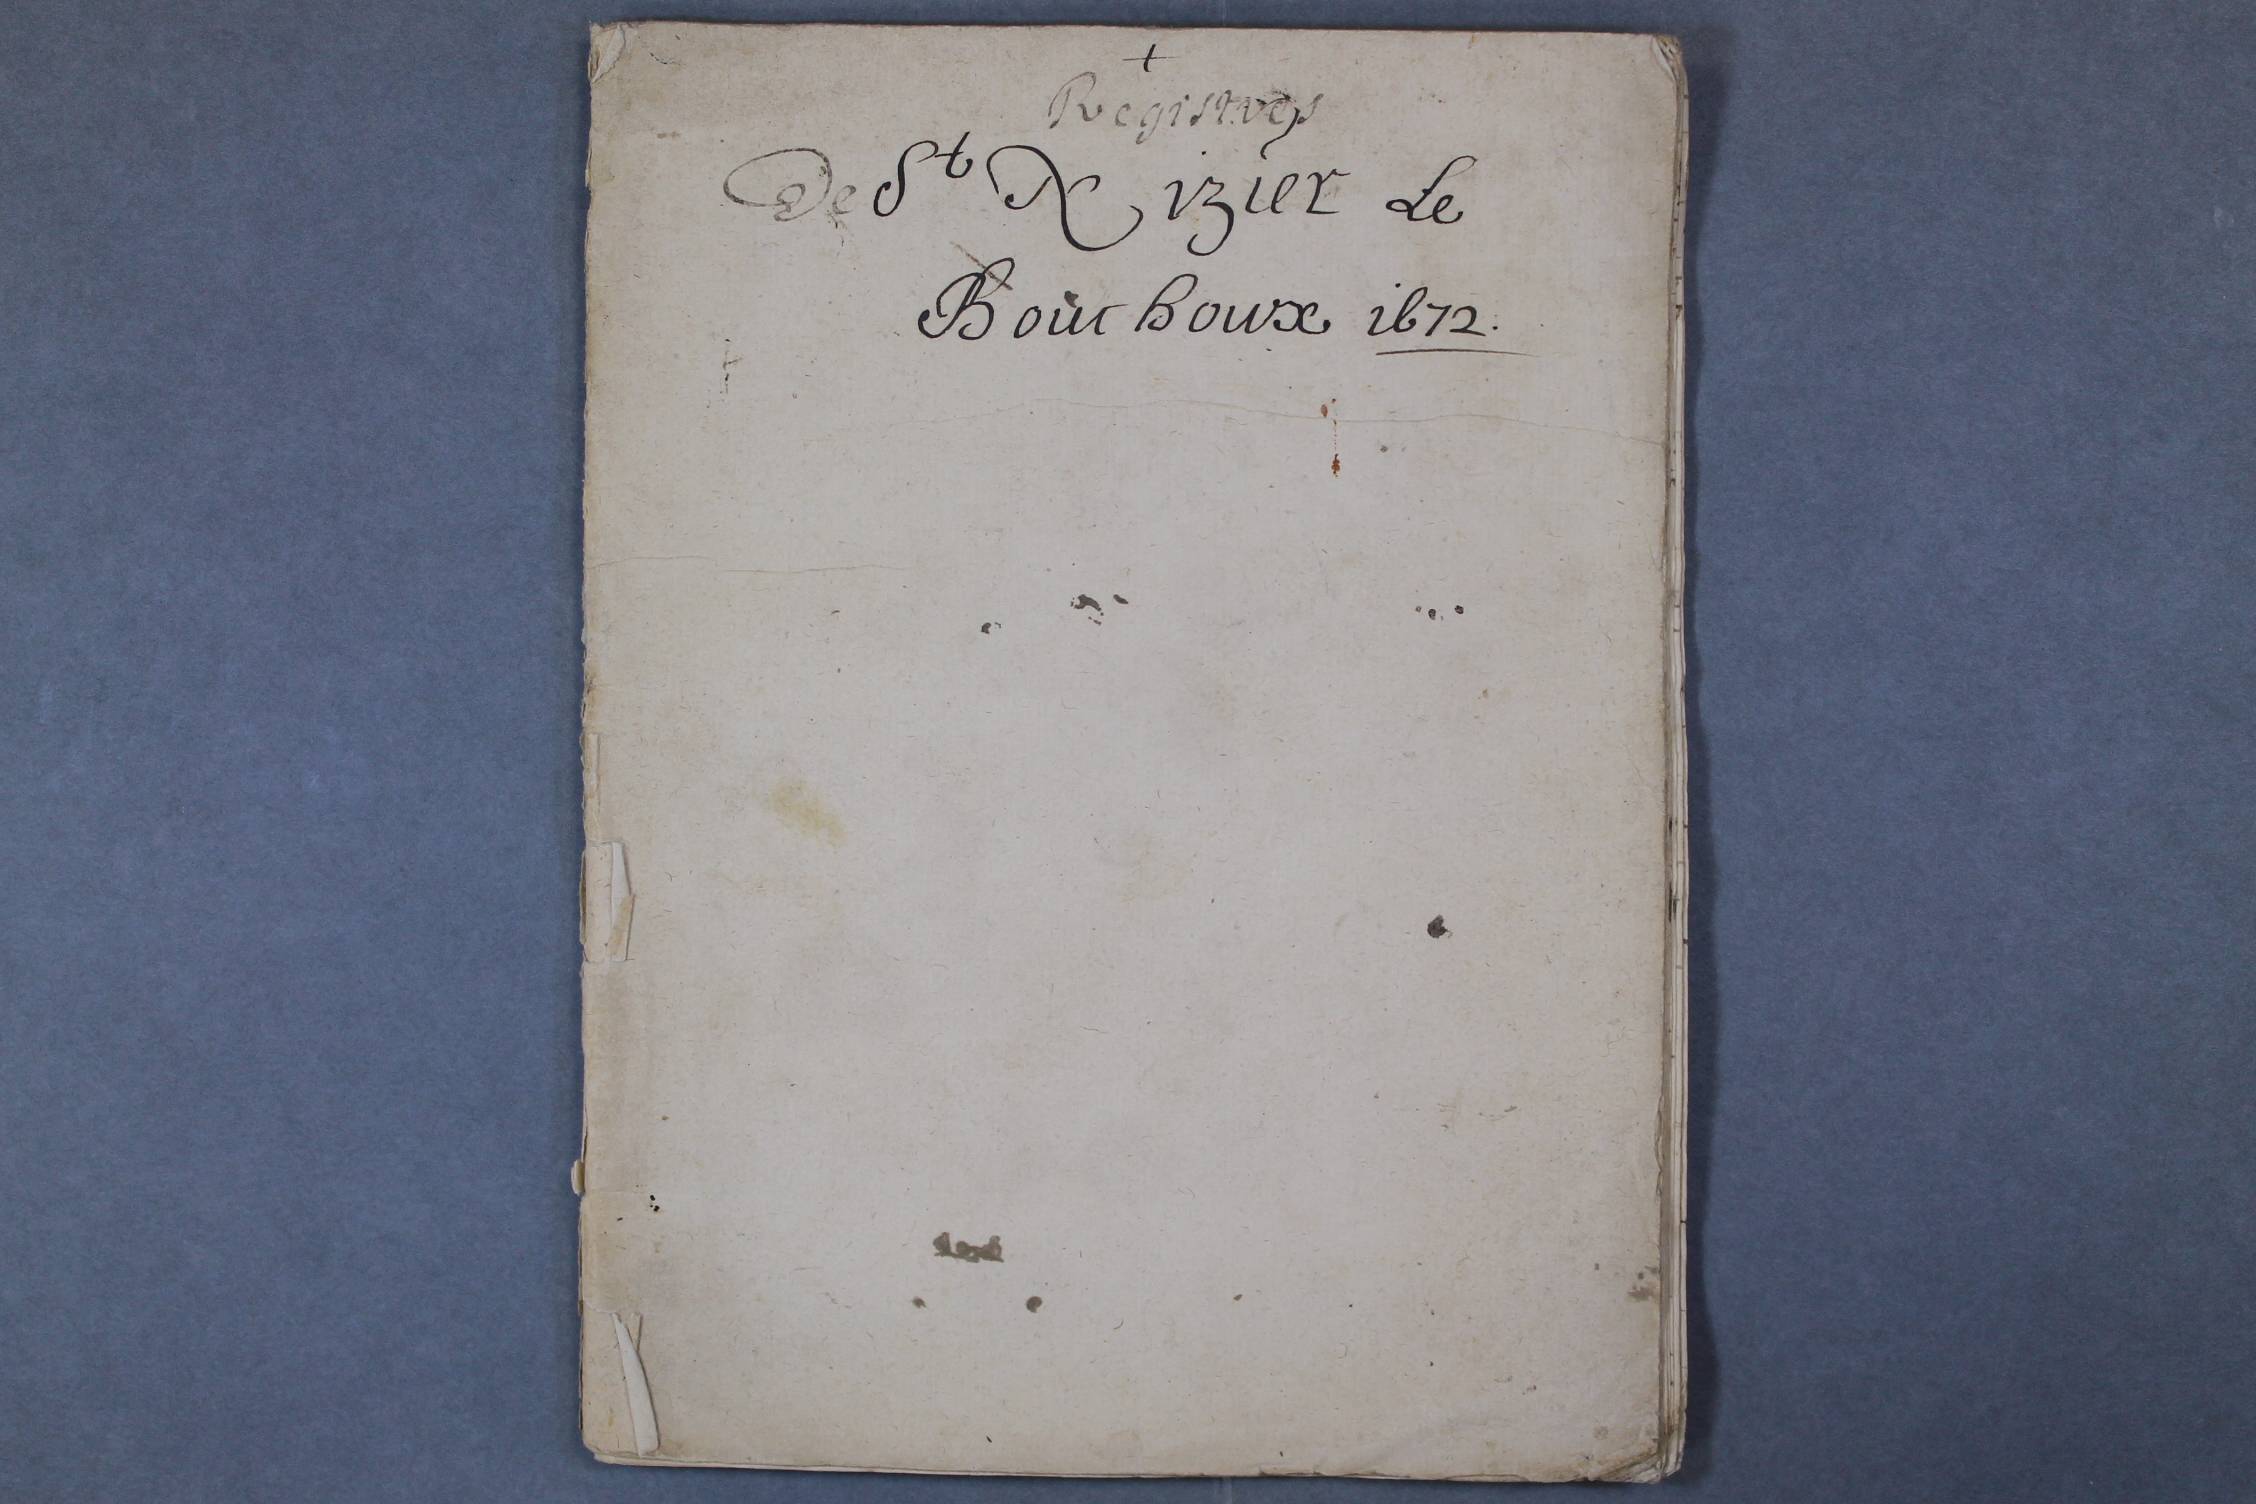 +
Registres
De St Nizier Le
Boùchoux 1672.